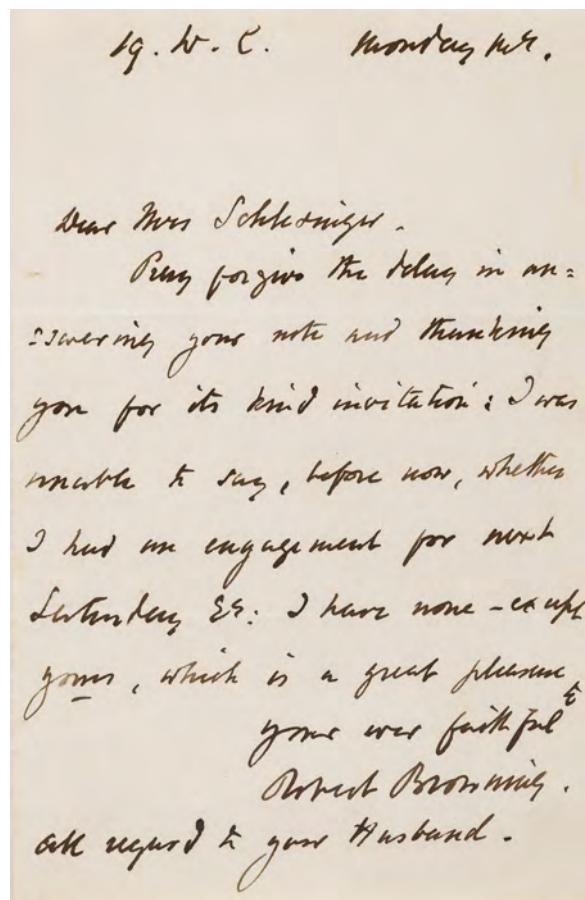 19. W. C. Monday nt.
Dear Mrs Schlesinger.
Pray forgive the delay in an=
=swering your note and thanking
you for its kind invitation: I was
unable to say, before now, whether
I had an engagement for next
Saturday Eg: I have none - except
yours, which is a great pleasure
to
yours ever faithful
Robert Browning.
All regard to your Husband.